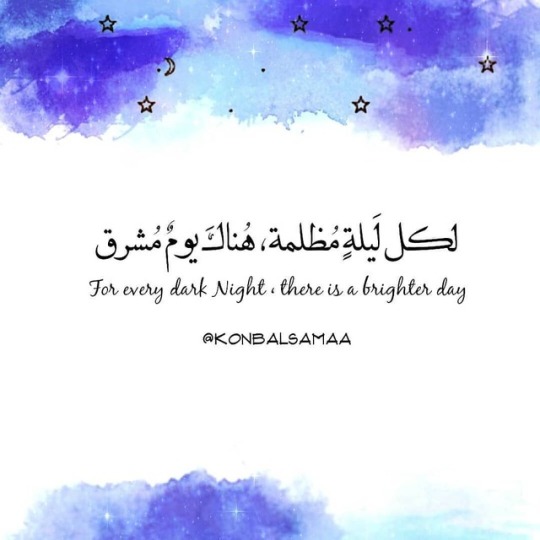 لكل لَيلةٍ مُظلمة، هُناكَ يومٌ مُشرق
For every dark Night ، there is a brighter day
@KONBALSAMAA